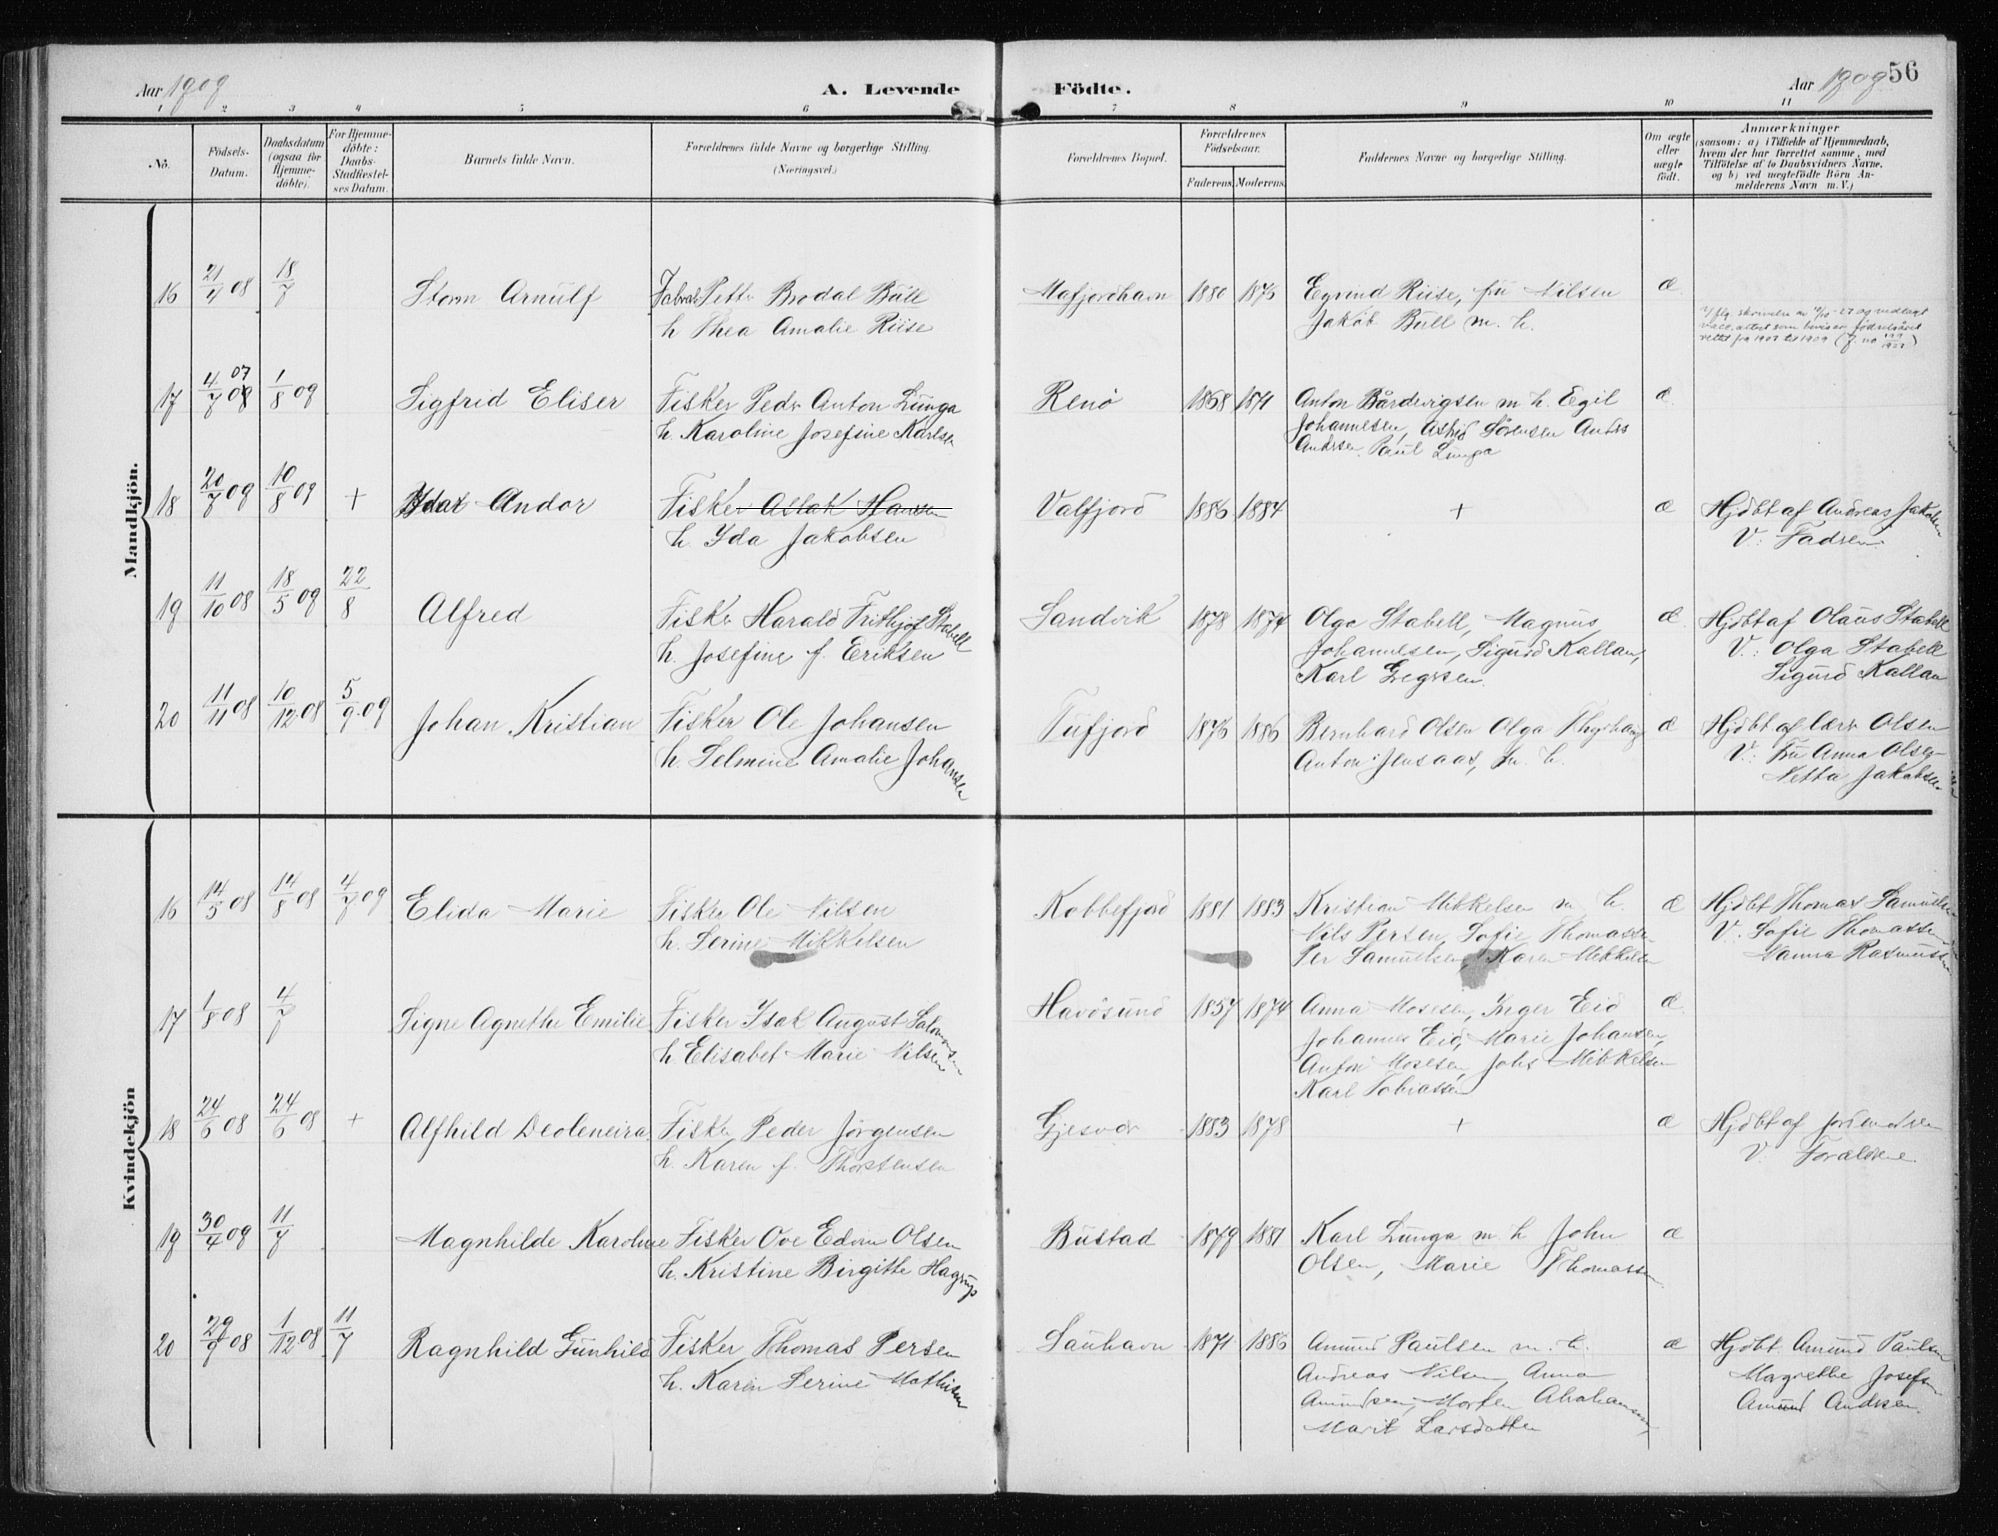 Aar 1909
A. Levende Födte.
Aar 1909 56
1 2 3 4 5 6 7 8 9 10 11
No.
Födsels-Datum.
Daabsdatum (ogsaa for Hjemme-döbte).
For Hjemme-döbte: Daabs-Stadfæstel-ses Datum.
Barnets fulde Navn.
Forældrenes fulde Navne og borgerlige Stilling. (Næringsvei.)
Forældrenes Bopæl.
Forældrenes Födselsaar.
Faderens. Moderens.
Faddernes Navne og borgerlige Stilling.
Om ægte eller uægte födt.
Anmærkninger
(saasom: a) i Tilfælde af Hjemmedaab,
hvem der har forrettet samme, med
Tilföielse af to Daabsvidners Navne,
og b) ved uægtefödte Börn An-
melderens Navn m. V.)
Mandkjön.
16 21/4 08 18/7 Storm Arnulf Petter Brodal Bull Mafjordhavn 1880 1876 Eyvind Riise, fru Nilsen æ.
h Thea Amalie Riise Jakob Bull m. h.
17 4/7 08 07 1/8 09 Sigfrid Eliser Fisker Peder Anton Lunga Renö 1868 1871 Anton Bårdevigsen m. h. Egil æ.
h. Karoline Josefine Karlsen Johannesen, Astrid Sörensen Anders
Andersen, Paul Lunga
18 20/7 09 10/8 09 + Andor Fisker Aslak Hansen Valfjord 1886 1884 + æ Hjdbt af Andreas Jakobsen
h. Yda Jakobsen V: Faderen
19 11/10 08 18/5 09 22/8 Alfred Fisker Harald Frithjof Stabell Sandvik 1878 1874 Olga Stabell, Magnus æ. Hjdbt af Olaus Stabell
h. Josefine f. Eriksen Johannesen, Sigurd Kallan, V.: Olga Stabell
Karl Gregersen. Sigurd Kallan
20 11/11 08 10/12 08 5/9 09 Johan Kristian Fisker Ole Johansen Tufjord 1876 1886 Bernhard Olsen Olga æ Hjdbt af Olsen
h. Selmine Amalie Johansen Anton Jensaas, m. h. V.: fru Anna Olsen
Netta Jakobsen
Kvindekjön
16 14/5 08 14/8 08 4/7 09 Elida Marie Fisker Ole Nilsen Kobbefjord 1881 1883 Kristian Mikkelsen m h. æ Hjdbt Thomas Samuelsen
h. Serine Mikkelsen Nils Persen, Sofie Thomassen V. Sofie Thomassen
Per Samuelsen, Karen Mikkelsen Nanna Rasmussen
17 1/8 08 4/7 Signe Agnethe Emilie Fisker Ysak August Salomonsen Havösund 1857 1874 Anna Mosesen, Inger Eid æ.
h. Elisabet Marie Nilsen Johannes Eid, Marie Johansen,
Anton Mosesen, Johs Mikkelsen
Karl Tobiassen
18 24/6 08 24/6 08 + Alfhild Deoleneira Fisker Peder Jörgensen Gjesvær 1883 1878 + æ Hjdbt af
h. Karen f. Thorstensen V. Forældrene
19 30/4 09 11/7 Magnhilde Karoline Fisker Ove Edvin Olsen Bustad 1879 1881 Karl Lunga m. h John æ
h. Kristine Birgithe Hagrup Olsen, Marie Thomassen
20 29/9 08 1/12 08 11/7 Ragnhild Gunhild Fisker Thomas Persen Sauhavn 1871 1886 Amund Paulsen m. h. æ Hjdbt. Amund Paulsen
h. Karen Serine Mathisen Andreas Nilsen, Anna Margrethe Josefsen
Amundsen, Morten Abrahamsen, Amund Andersen.
Marit Larsdatter